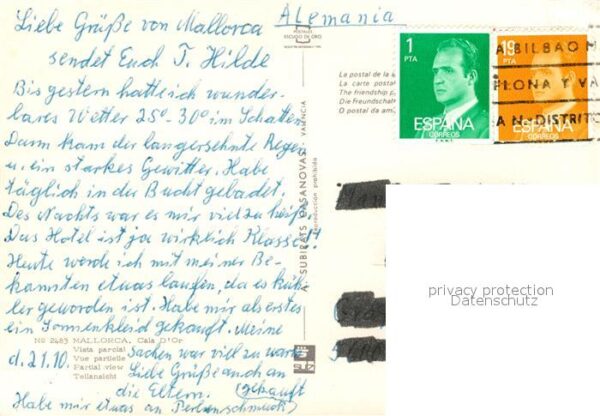 Alemania
Liebe Grüße von Mallorca
sendet Euch T. Hilde
Bis gestern hatte ich wunder-
bares Wetter 25°-30° im Schatten
Dann kam der langersehnte Regen
u. ein starkes Gewitter. Habe
täglich in der Bucht gebadet.
Des Nachts war es mir viel zu heiß
Das Hotel ist ja wirklich Klasse!!
Heute werde ich mit meiner Be-
kannsten etwas laufen, da es küh-
ler geworden ist. Habe mir als erstes
ein Sonnenkleid gekauft. Meine
Sachen war viel zu warm
d. 21.10.
Liebe Grüße auch an
die Eltern.
Habe mir etwas an Perlenschmuck
gekauft
No 2483 MALLORCA. Cala D'Or
Vista parcial
Vue partielle
Partial view
Teilansicht
POSTALES
ESCUDO DE ORO
A. SUBIRATS CASANOVAS. VALENCIA
Reproducción prohibida
Le postal de la a
La carte postal
The friendship p
Die Freundschaf
O postal da am
1
PTA
ESPAÑA
CORREOS
19
PTA
ESPAÑA
CORREOS
A BILBAO
PLONA Y VA
AN. DISTRITO
privacy protection
Datenschutz